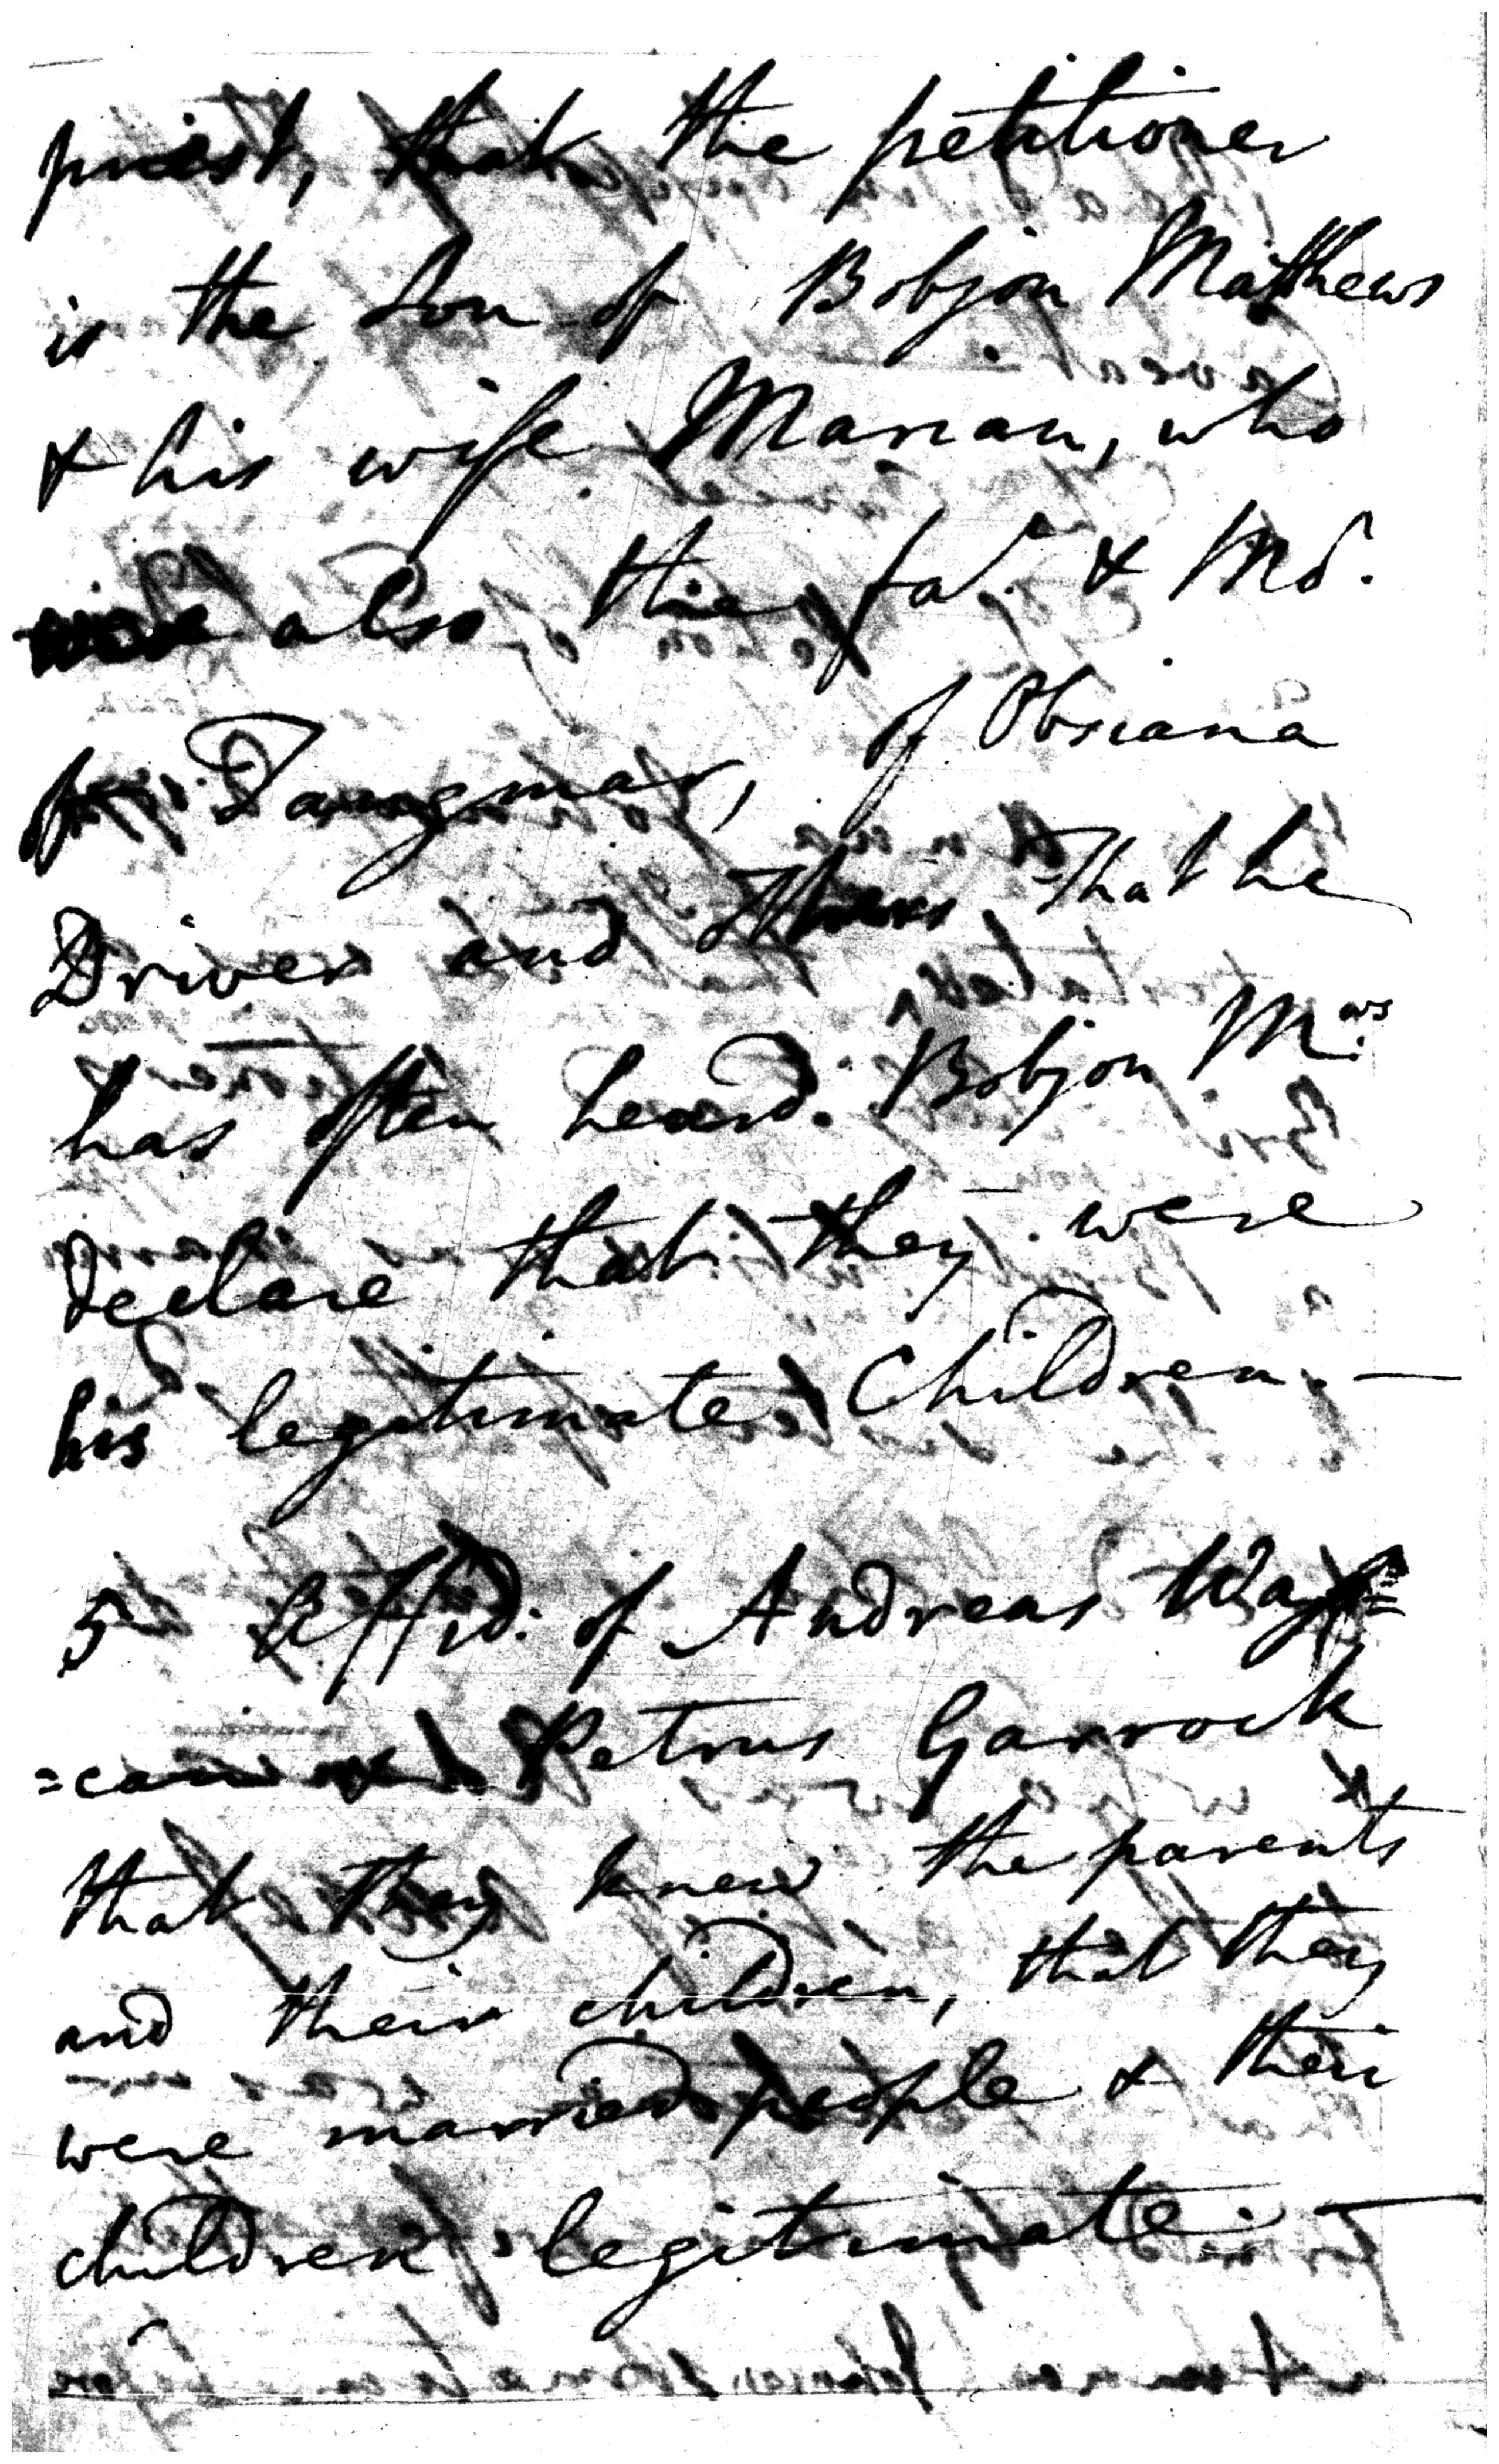 priest, that the petitioner
is the son of Bobjon Matthews
& his wife Marian, who
were also the fa.r & Mo.r
of Dangmar, of Obsiana
Driver and others, that he
has often heard Bobjon M.ws
declare that they were
his legitimate Children. —
5 Affid: of Andreas
Petrus Garrock
that they knew the parents
and their children, that they
were married people & their
children legitimate. —